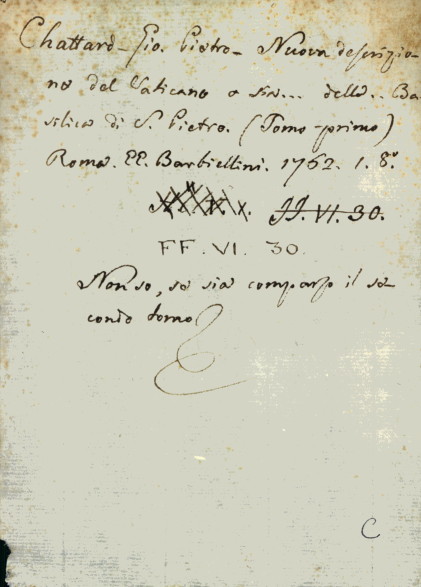 Chattard - Gio. Pietro - Nuova descrizio-
ne del Vaticano o sia... della.. Ba-
silica di S. Pietro. (Tomo primo)
Roma. EE. Barbiellini. 1762. 1. 8.°
JJ. VI. 30.
FF. VI. 30
Non so, se sia comparso il se-
condo tomo
C